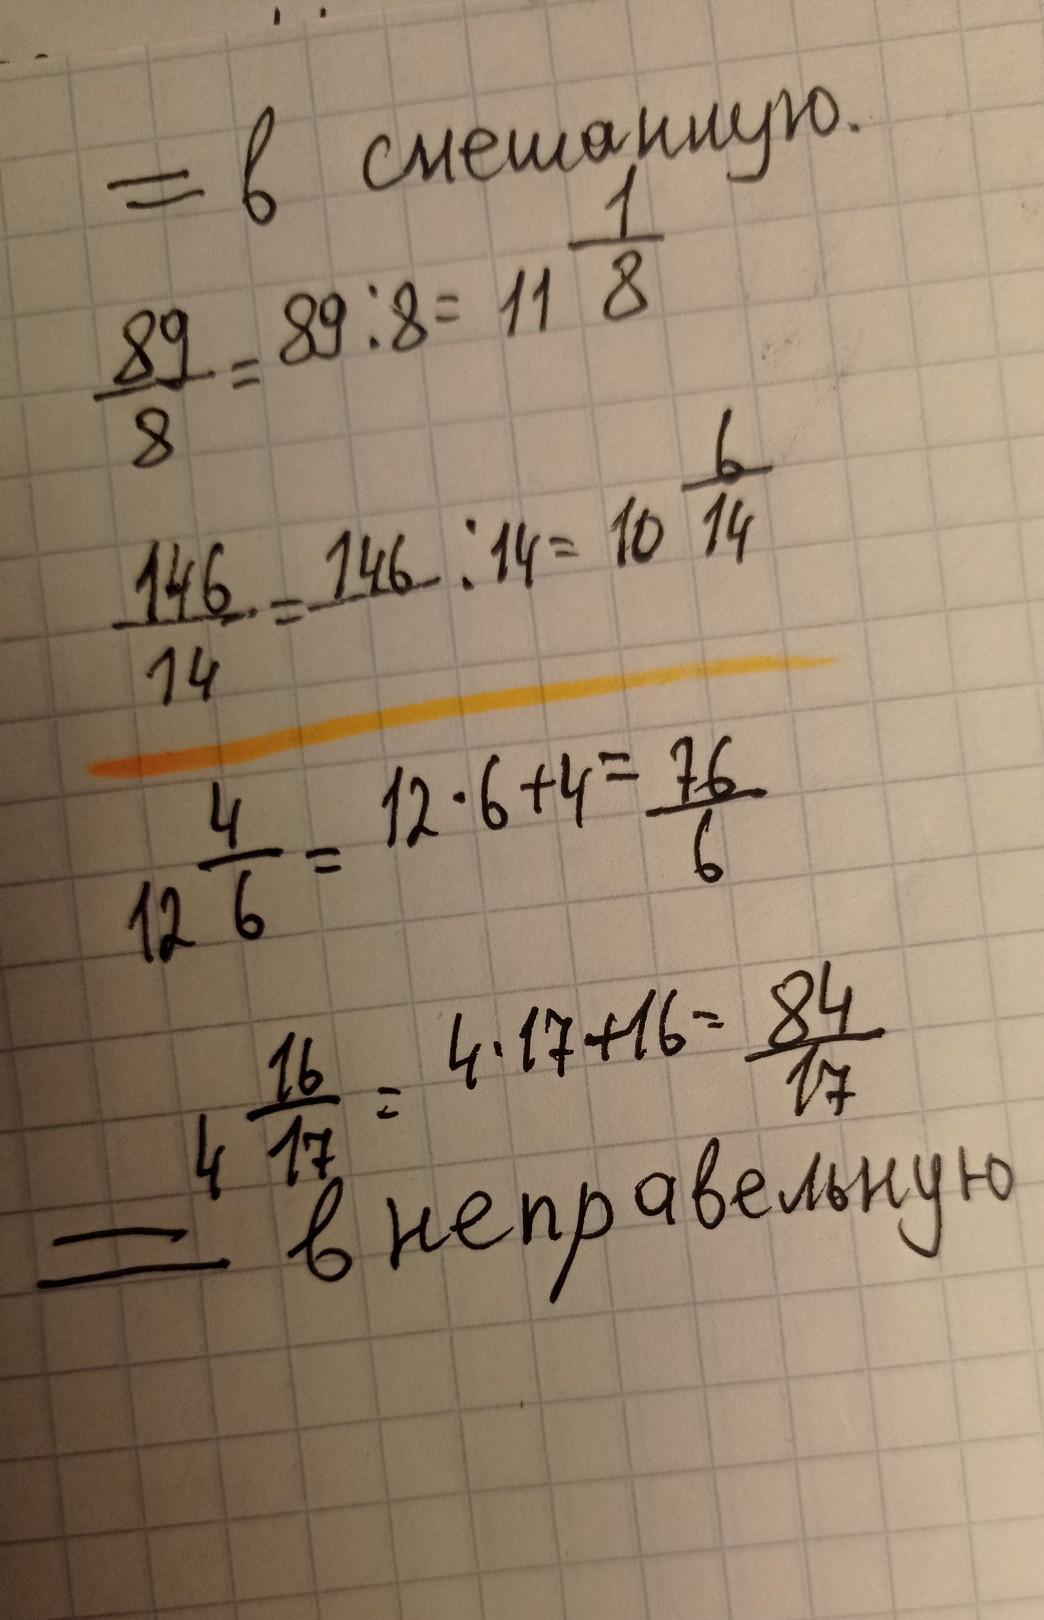 = в смешанную.
89/8 = 89:8= 11 1/8
146/14 = 146 :14= 10 6/14
12 4/6 = 12·6+4= 76/6
4 16/17 = 4·17+16= 84/17
= в неправельную